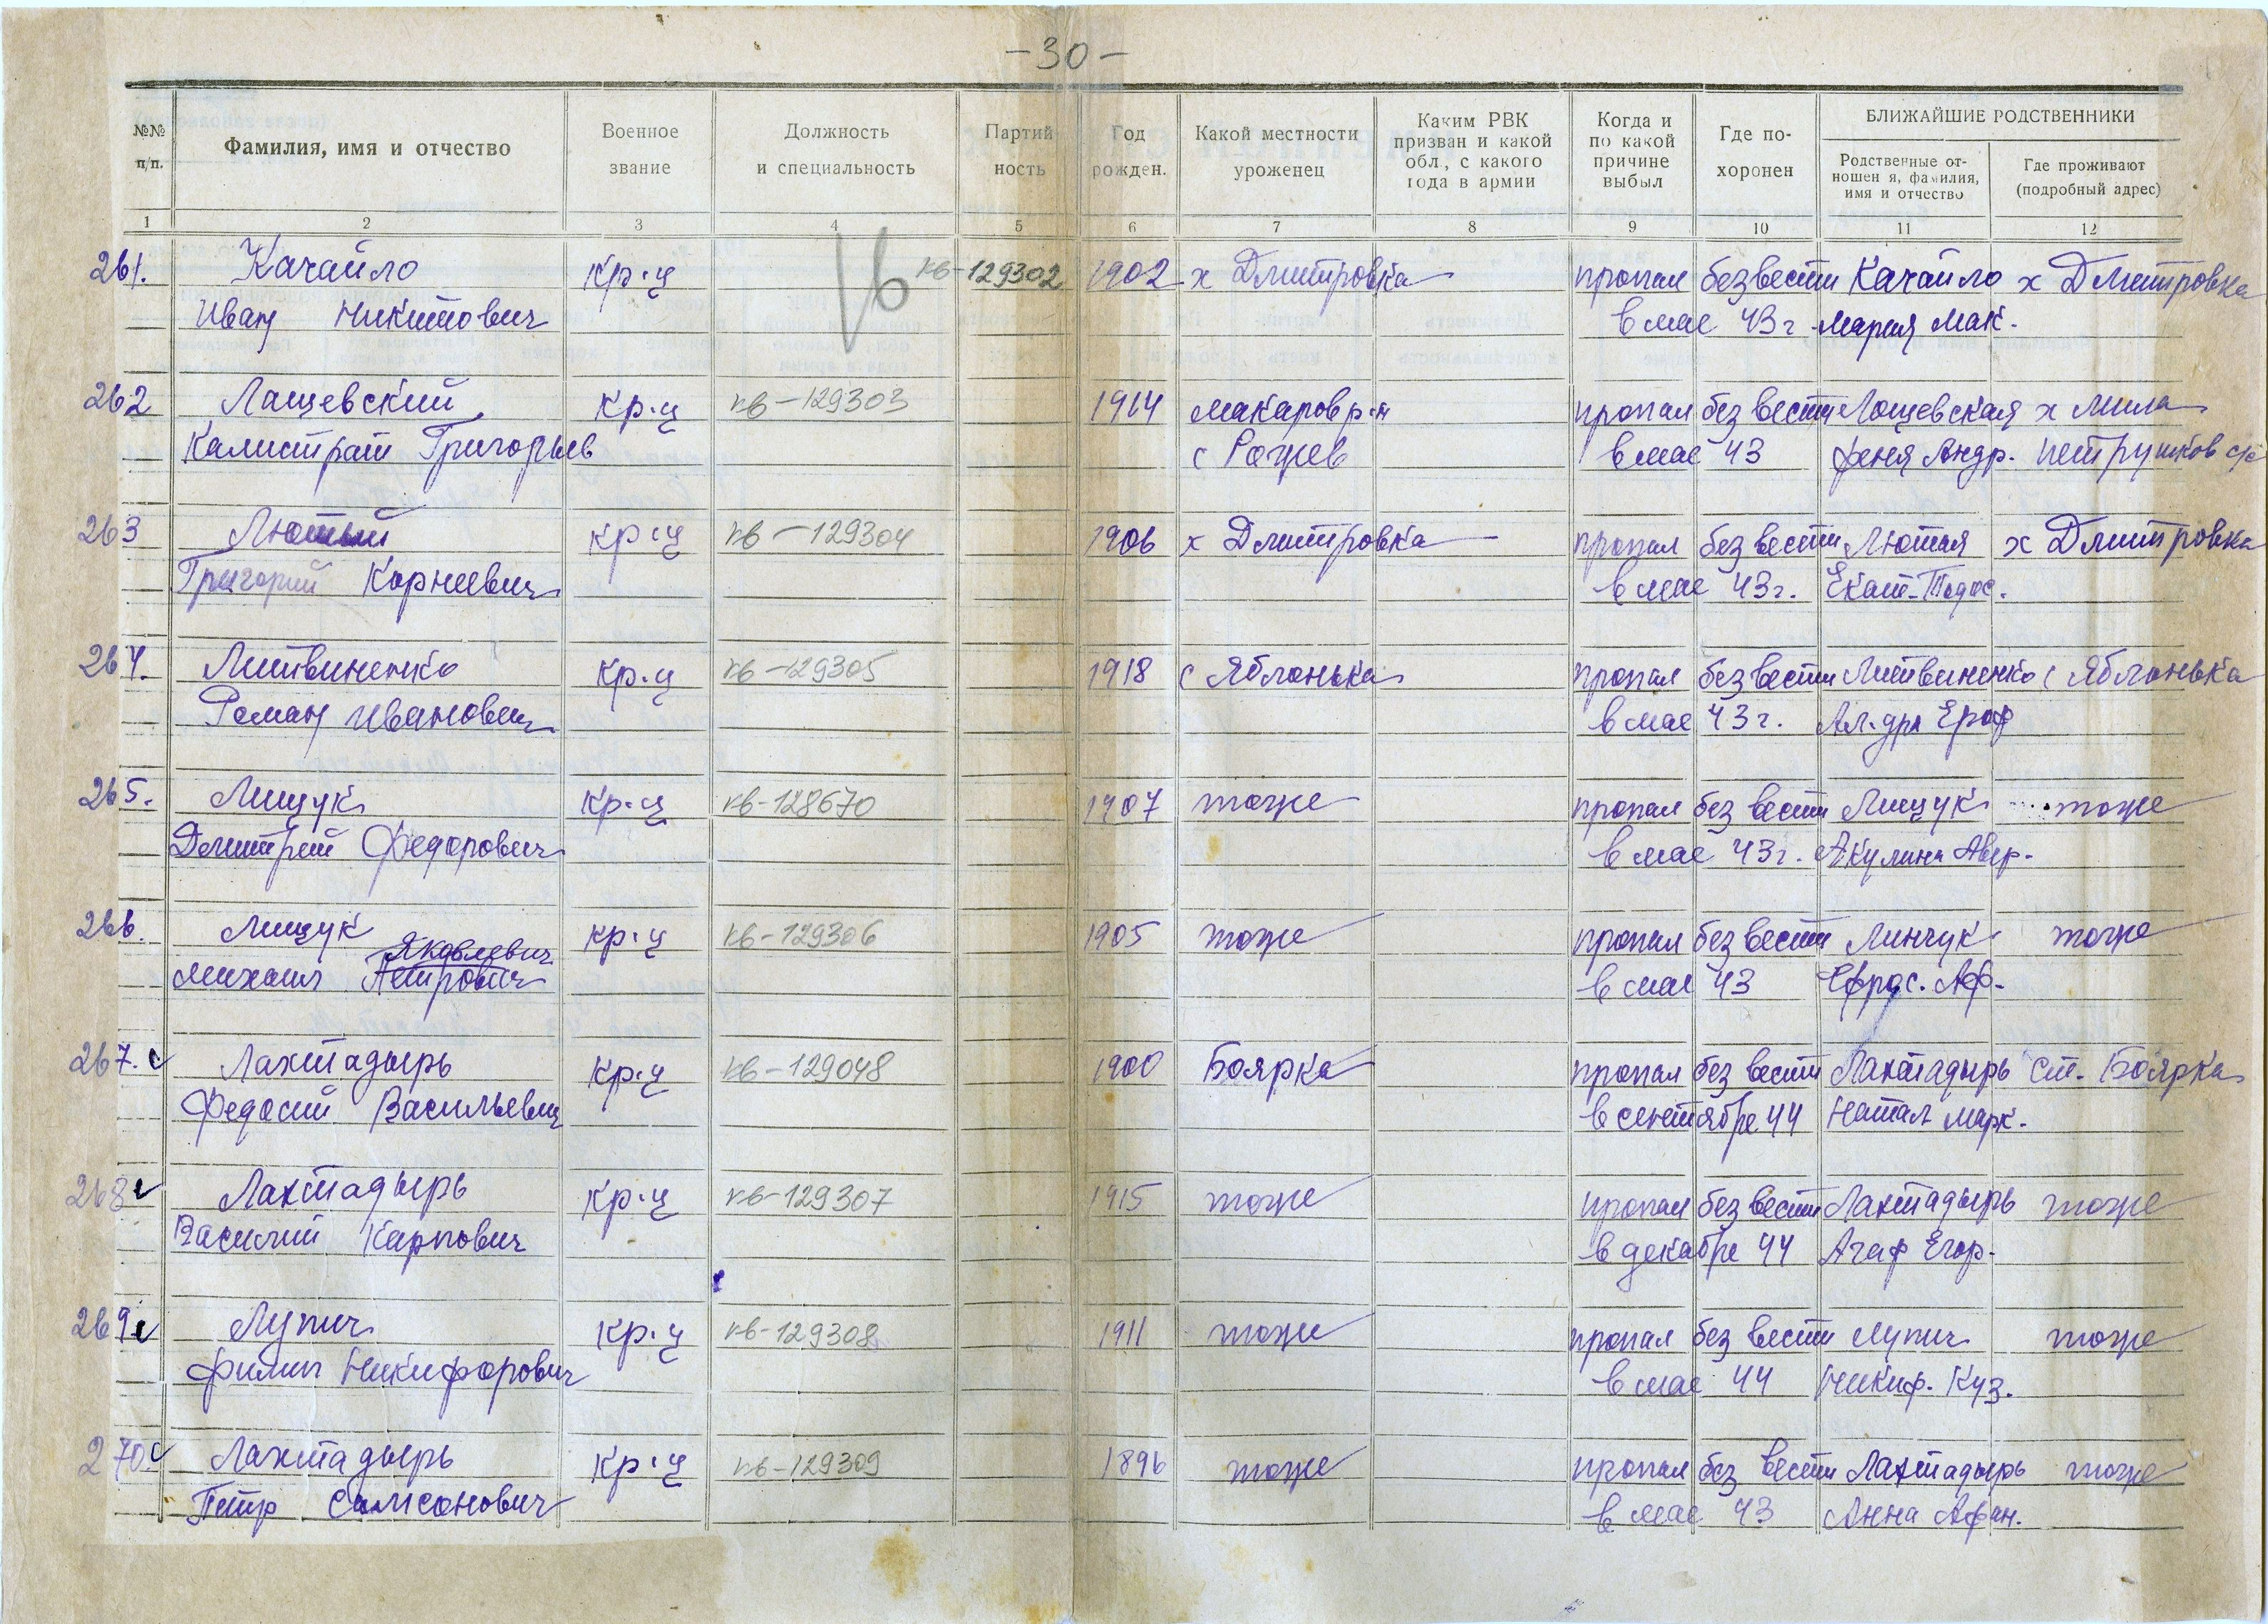 -30-
№№ п/п.
Фамилия, имя и отчество
Военное звание
Должность и специальность
Партий ность
Год рожден.
Какой местности уроженец
Каким РВК призван и какой обл, с какого года в армии
Когда и по какой причине выбыл
Где по- хоронен
БЛИЖАЙШИЕ РОДСТВЕННИКИ
Родственные от- ношен я, фамилия, имя и отчество
Где проживают (подробный адрес)
1 2 3 4 5 6 7 8 9 10 11 12
261. Качайло кр-ц кв-129302 1902 х Дмитровка пропал без вести Качайло х Дмитровка
Иван Никитович в мае 43г. Мария Мак.
262 Лащевский кр-ц кв-129303 1914 Макаров р-н пропал без вести Лощевская х Мила
Калистрат Григорьев с Рожев в мае 43 Феня Андр. Петрушков с/с
263 Лютый кр-ц кв-129304 1906 х Дмитровка пропал без вести Лютая х Дмитровка
Григорий Корнеевич в мае 43г. Екат. Тодос.
264. Литвиненко кр-ц кв-129305 1918 с Яблонька пропал без вести Литвиненко с Яблонька
Роман Иванович в мае 43г. Ал-дра Ероф
265. Лищук кр-ц кв-128670 1907 тоже пропал без вести Лищук тоже
Дмитрий Федорович в мае 43г. Акулина Авер.
266. Лищук кр-ц кв-129306 1905 тоже пропал без вести Линчук тоже
Яковлевич
Михаил Петрович в мае 43 Ефрос. Аф.
267. Лахтадырь кр-ц кв-129048 1900 Боярка пропал без вести Лахтадырь ст. Боярка
Федосий Васильевич в сентябре 44 Натал Марк.
268 Лахтадырь кр-ц кв-129307 1915 тоже пропал без вести Лахтадырь тоже
Василий Карпович в декабре 44 Агаф Егор.
269 Лупич кр-ц кв-129308 1911 тоже пропал без вести Лупич тоже
Филип Никифорович в мае 44 Никиф. Куз.
270. Лахтадырь кр-ц кв-129309 1896 тоже пропал без вести Лахтадырь тоже
Петр Самсонович в мае 43 Анна Афан.